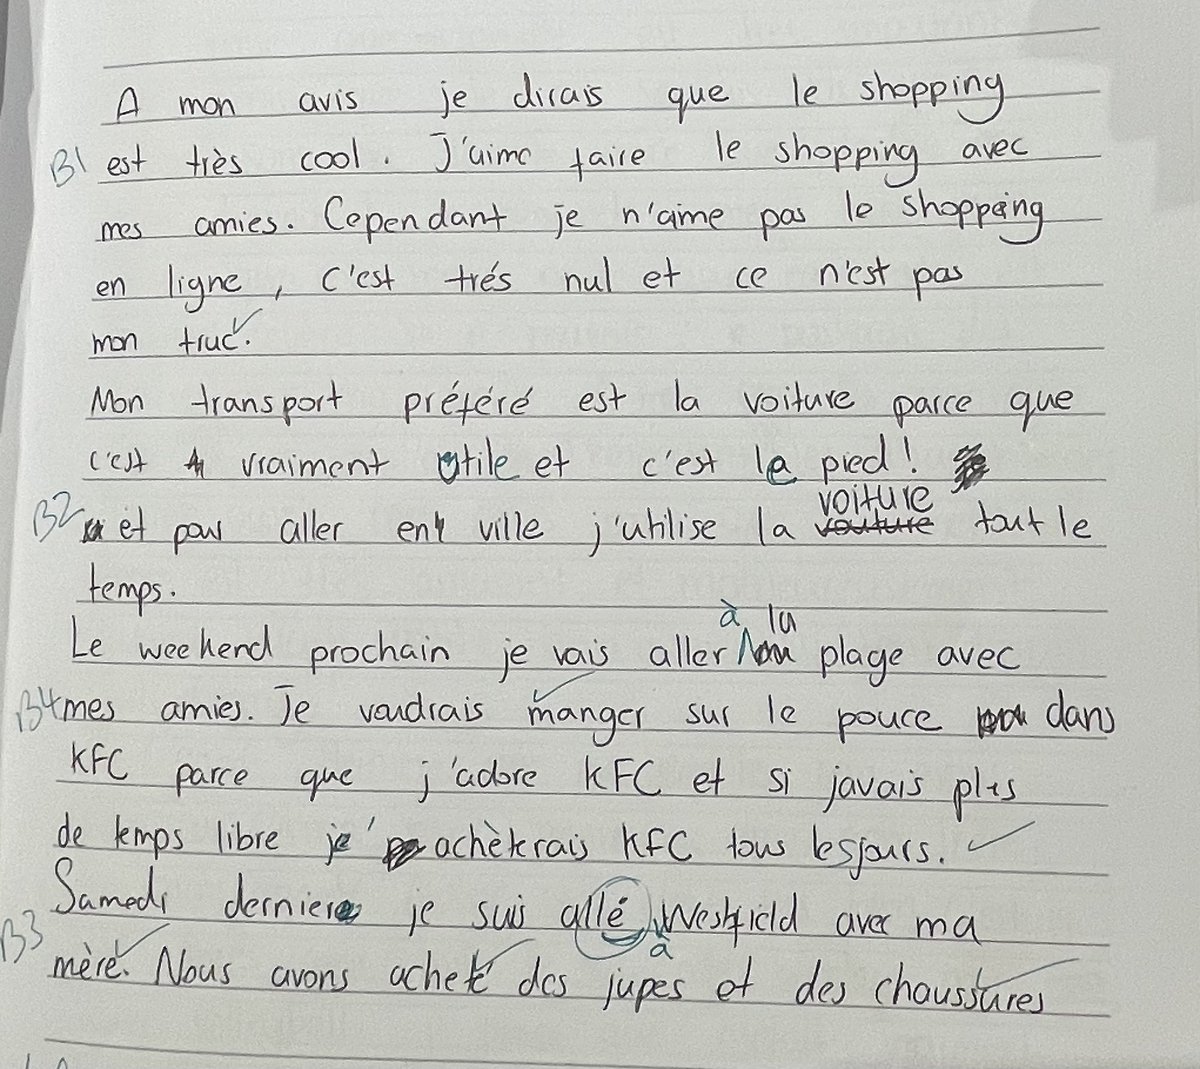 A mon avis je dirais que le shopping
B1 est très cool. J'aime faire le shopping avec
mes amies. Cependant je n'aime pas le shopping
en ligne, c'est trés nul et ce n'est pas
mon truc.
Mon transport préféré est la voiture parce que
c'est vraiment utile et c'est le pied!
voiture
B2 et pour aller en ville j'utilise la vouture tout le
temps.
à la
Le weekend prochain je vais aller plage avec
B4 mes amies. Je voudrais manger sur le pouce dans
KFC parce que j'adore KFC et si javais plus
de temps libre j' achèterais KFC tous les jours.
Samedi dernier je suis allé Westfield avec ma
à
B3 mère. Nous avons acheté des jupes et des chaussures